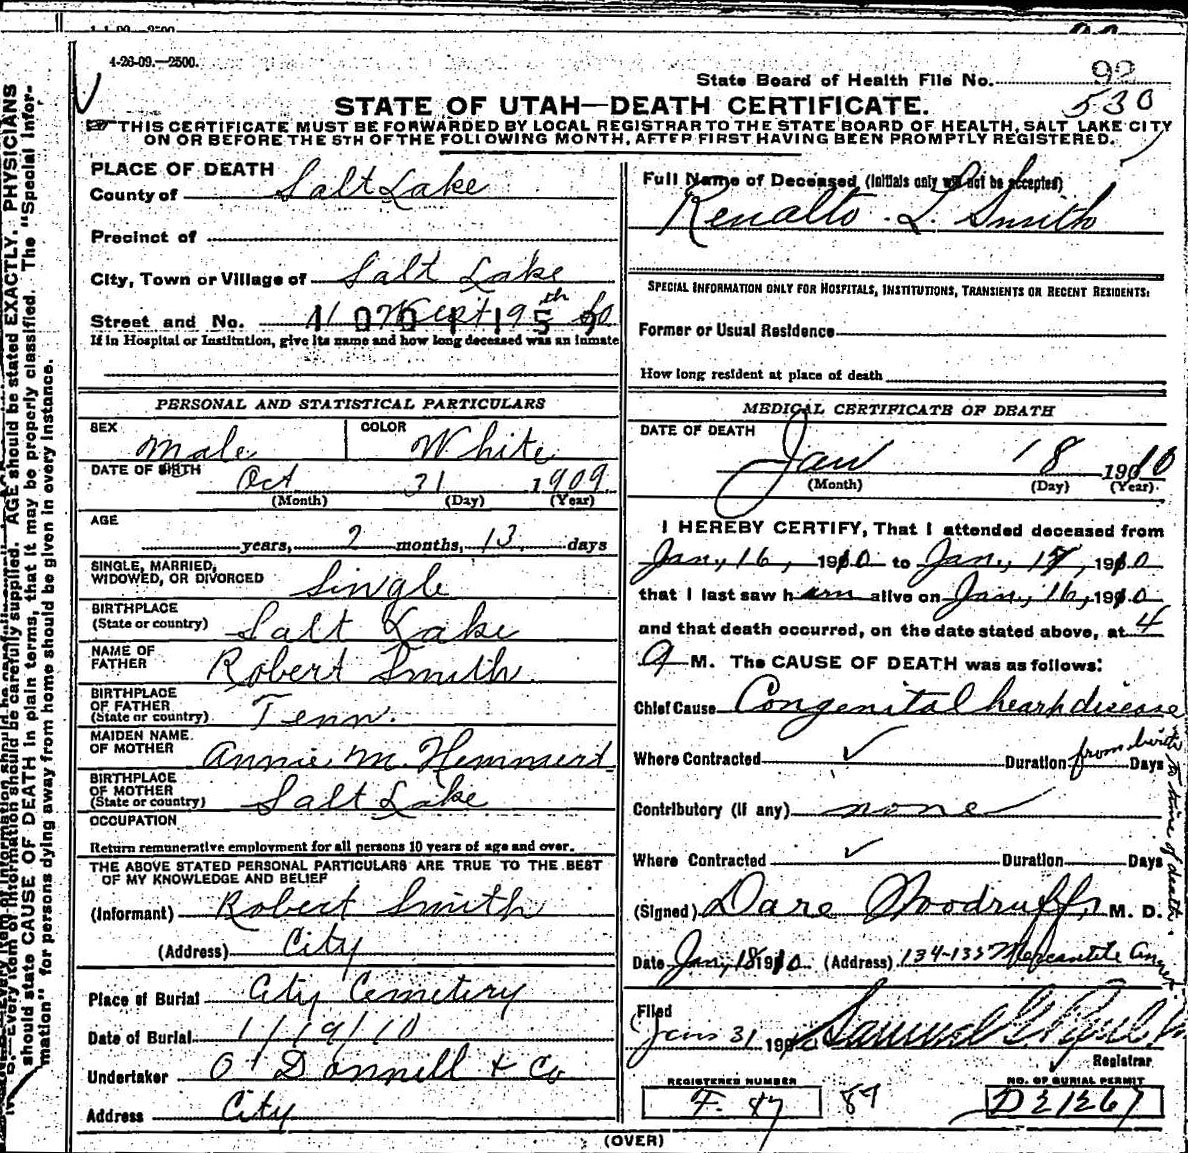 4-26-09.—2500.
State Board of Health File No. 92
530
STATE OF UTAH—DEATH CERTIFICATE.
THIS CERTIFICATE MUST BE FORWARDED BY LOCAL REGISTRAR TO THE STATE BOARD OF HEALTH, SALT LAKE CITY
ON OR BEFORE THE 5TH OF THE FOLLOWING MONTH, AFTER FIRST HAVING BEEN PROMPTLY REGISTERED.
PLACE OF DEATH
County of Salt Lake
Precinct of
City, Town or Village of Salt Lake
Street and No.
If in Hospital or Institution, give its name and how long deceased was an inmate
PERSONAL AND STATISTICAL PARTICULARS
SEX Male COLOR White
DATE OF BIRTH Oct 31 1909
(Month) (Day) (Year)
AGE
years, 2 months, 13 days
SINGLE, MARRIED, WIDOWED, OR DIVORCED Single
BIRTHPLACE (State or country) Salt Lake
NAME OF FATHER Robert Smith
BIRTHPLACE OF FATHER (State or country) Tenn.
MAIDEN NAME OF MOTHER Annie M. Hemmerd
BIRTHPLACE OF MOTHER (State or country) Salt Lake
OCCUPATION
Return remunerative employment for all persons 10 years of age and over.
THE ABOVE STATED PERSONAL PARTICULARS ARE TRUE TO THE BEST
OF MY KNOWLEDGE AND BELIEF
(Informant) Robert Smith
(Address) City
Place of Burial City Cemetery
Date of Burial 1/19/10
Undertaker O'Donnell & Co
Address City
Full Name of Deceased (Initials only will not be accepted)
Renalto L. Smith
SPECIAL INFORMATION ONLY FOR HOSPITALS, INSTITUTIONS, TRANSIENTS OR RECENT RESIDENTS:
Former or Usual Residence
How long resident at place of death
MEDICAL CERTIFICATE OF DEATH
DATE OF DEATH
Jan 18 1910
(Month) (Day) (Year)
I HEREBY CERTIFY, That I attended deceased from
Jan, 16, 1910 to Jan, 17, 1910
that I last saw him alive on Jan, 16, 1910
and that death occurred, on the date stated above, at 4
a M. The CAUSE OF DEATH was as follows:
Chief Cause Congenital heart disease
Where Contracted ✓ Duration from birth to time of death. Days
Contributory (if any) none
Where Contracted ✓ Duration Days
(Signed) Dare Woodruff, M. D.
Date Jan, 18 1910 (Address) 134-135 Mercantile
Filed
Jan 31 190 Samuel G.
Registrar
REGISTERED NUMBER
F. 87 87
NO. OF BURIAL PERMIT
D 21267
(OVER)
Every item of information should be carefully supplied. AGE should be stated EXACTLY. PHYSICIANS
should state CAUSE OF DEATH in plain terms, that it may be properly classified. The "Special Infor-
mation" for persons dying away from home should be given in every instance.